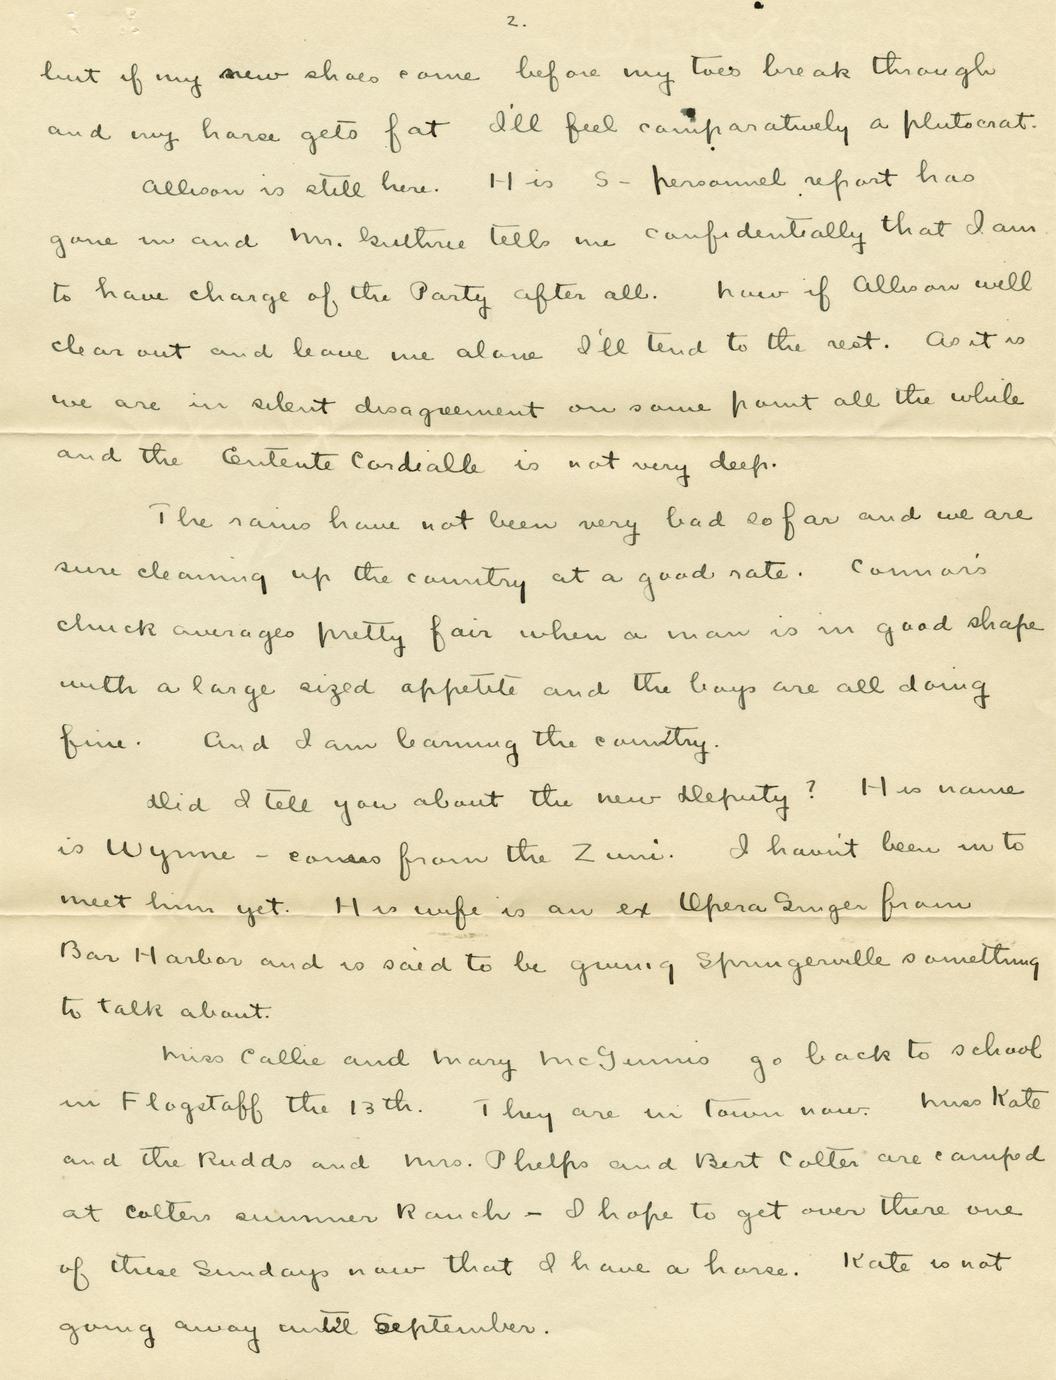 2.
but if my new shoes come before my toes break through
and my horse gets fat I'll feel comparatively a plutocrat.
Allison is still here. His S- personnel report has
gone in and Mr. Guthrie tells me confidentially that I am
to have charge of the Party after all. Now if Allison will
clear out and leave me alone I'll tend to the rest. As it is
we are in silent disagreement on some point all the while
and the Entente Cordialle is not very deep.
The rains have not been very bad so far and we are
sure cleaning up the country at a good rate. Connor's
chuck averages pretty fair when a man is in good shape
with a large sized appetite and the boys are all doing
fine. And I am learning the country.
Did I tell you about the new Deputy? His name
is Wynne - comes from the Zuni. I havn't been in to
meet him yet. His wife is an ex Opera Singer from
Bar Harbor and is said to be giving Springerville something
to talk about.
Miss Callie and Mary McGinnis go back to school
in Flagstaff the 13th. They are in town now. Miss Kate
and the Rudds and Mrs. Phelps and Bert Colter are camped
at Colters summer Ranch - I hope to get over there one
of these Sundays now that I have a horse. Kate is not
going away until September.